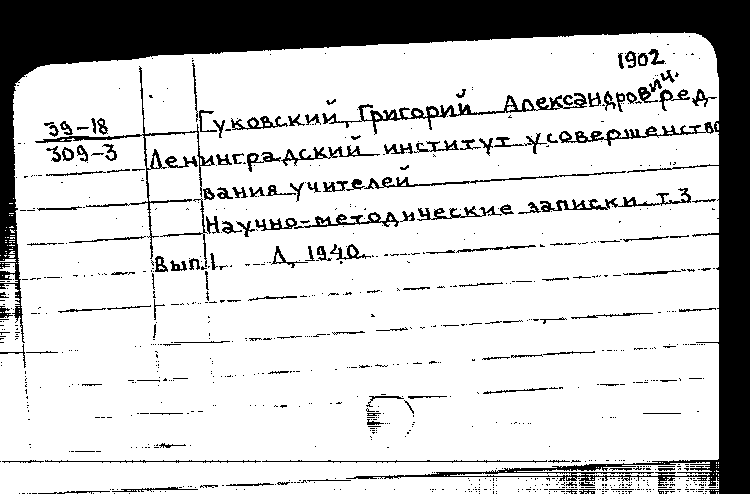 1902
39-18
309-3
Гуковский, Григорий Александрович. ред.
Ленинградский институт усовершенство
вания учителей
Научно-методические записки. т. 3
Вып. 1. Л, 1940.